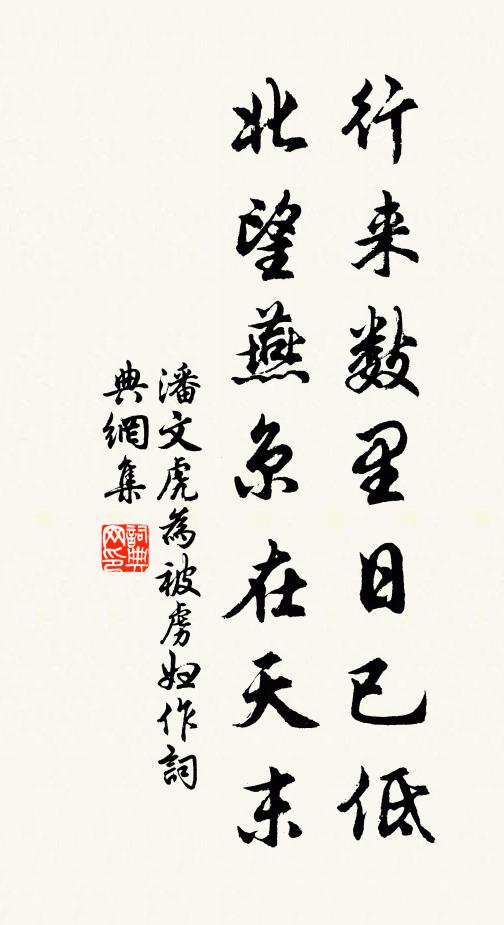 行来數里日已低
北望燕京在天末
潘文虎為被虜婦作詞
典網集
詞典网印